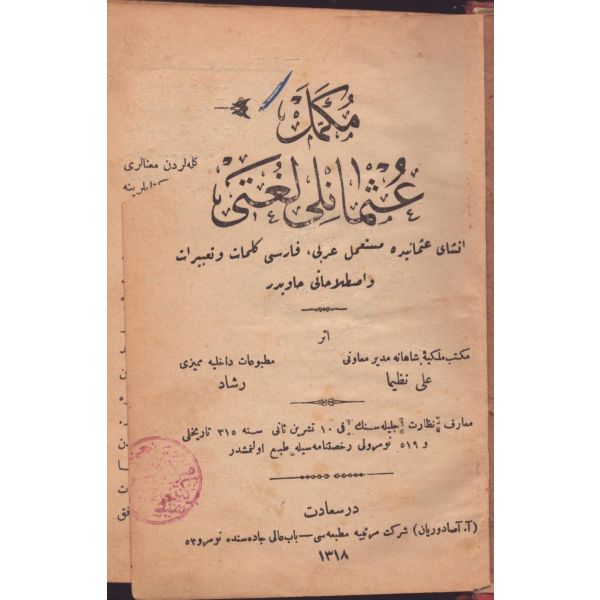 مكمل
عثمانلى لغتى
انشاى عثمانيده مستعمل عربى، فارسى كلمات و تعبيرات
و اصطلاحاتى حاويدر
اثر
مكتب ملكيۀ شاهانه مدير معاونى
على نظيما
مطبوعات داخليه مميزى
رشاد
معارف نظارت جليله سنك فى ١٠ تشرين ثانى سنه ٣١٥ تاريخلى
و ٥١٩ نومرولى رخصتنامه سيله طبع اولنمشدر
درسعادت
(آ. آصادوريان) شركت مرتبيه مطبعه سى — باب عالى جاده سنده نومرو ٥٣
١٣١٨
كله لردن معنالرى